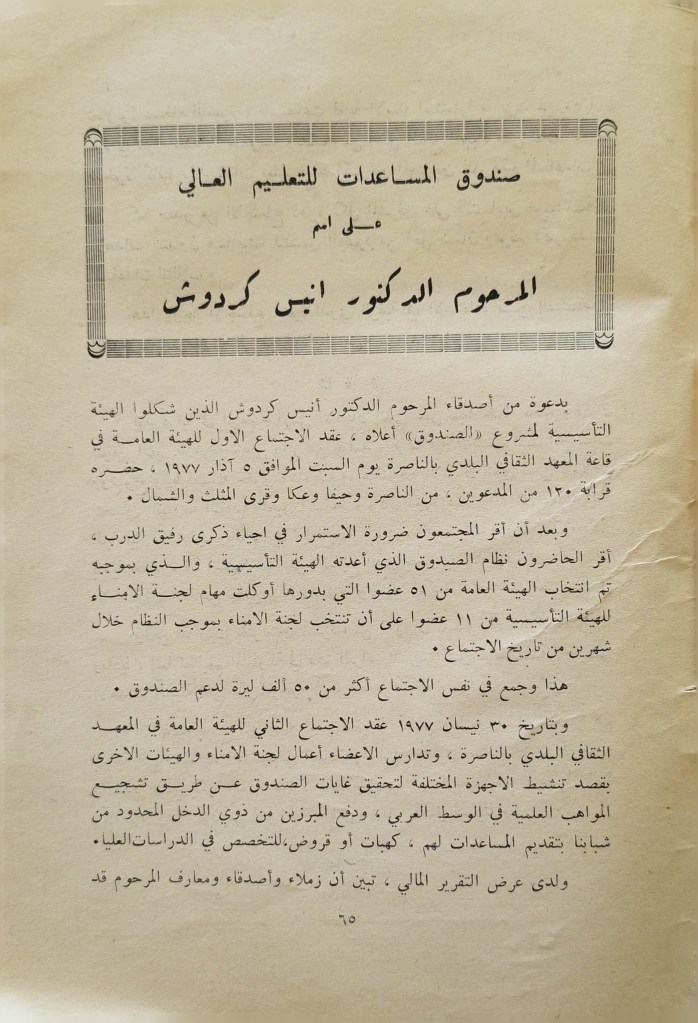 صندوق المساعدات للتعليم العالي
على اسم
المرحوم الدكتور انيس كردوش
بدعوة من أصدقاء المرحوم الدكتور أنيس كردوش الذين شكلوا الهيئة
التأسيسية لمشروع «الصندوق» أعلاه ، عقد الاجتماع الاول للهيئة العامة في
قاعة المعهد الثقافي البلدي بالناصرة يوم السبت الموافق ٥ آذار ١٩٧٧ ، حضره
قرابة ١٣٠ من المدعوين ، من الناصرة وحيفا وعكا وقرى المثلث والشمال ٠
وبعد أن أقر المجتمعون ضرورة الاستمرار في احياء ذكرى رفيق الدرب ،
أقر الحاضرون نظام الصندوق الذي أعدته الهيئة التأسيسية ، والذي بموجبه
تم انتخاب الهيئة العامة من ٥١ عضوا التي بدورها أوكلت مهام لجنة الامناء
للهيئة التأسيسية من ١١ عضوا على أن تنتخب لجنة الامناء بموجب النظام خلال
شهرين من تاريخ الاجتماع ٠
هذا وجمع في نفس الاجتماع أكثر من ٥٠ ألف ليرة لدعم الصندوق ٠
وبتاريخ ٣٠ نيسان ١٩٧٧ عقد الاجتماع الثاني للهيئة العامة في المعهد
الثقافي البلدي بالناصرة ، وتدارس الاعضاء أعمال لجنة الامناء والهيئات الاخرى
بقصد تنشيط الاجهزة المختلفة لتحقيق غايات الصندوق عن طريق تشجيع
المواهب العلمية في الوسط العربي ، ودفع المبرزين من ذوي الدخل المحدود من
شبابنا بتقديم المساعدات لهم ، كهبات أو قروض،للتخصص في الدراسات العليا٠
ولدى عرض التقرير المالي ، تبين أن زملاء وأصدقاء ومعارف المرحوم قد
٦٥